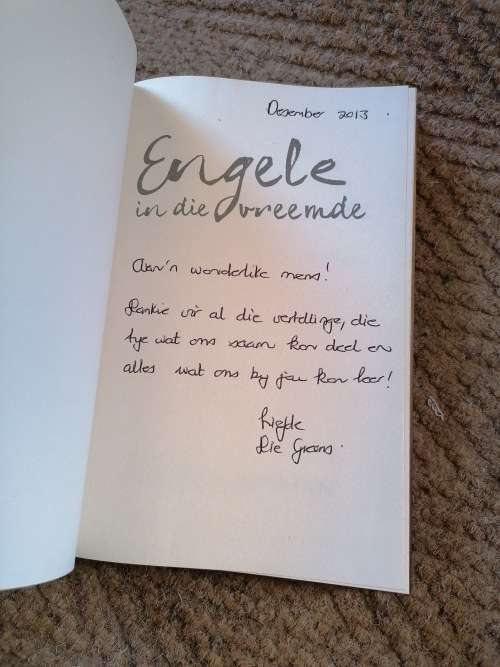 Desember 2013
Engele
in die vreemde
Aan 'n wonderlike mens!
Dankie vir al die vertellinge, die
tye wat ons saam kon deel en
alles wat ons by jou kon leer!
Liefde
Die Greens.